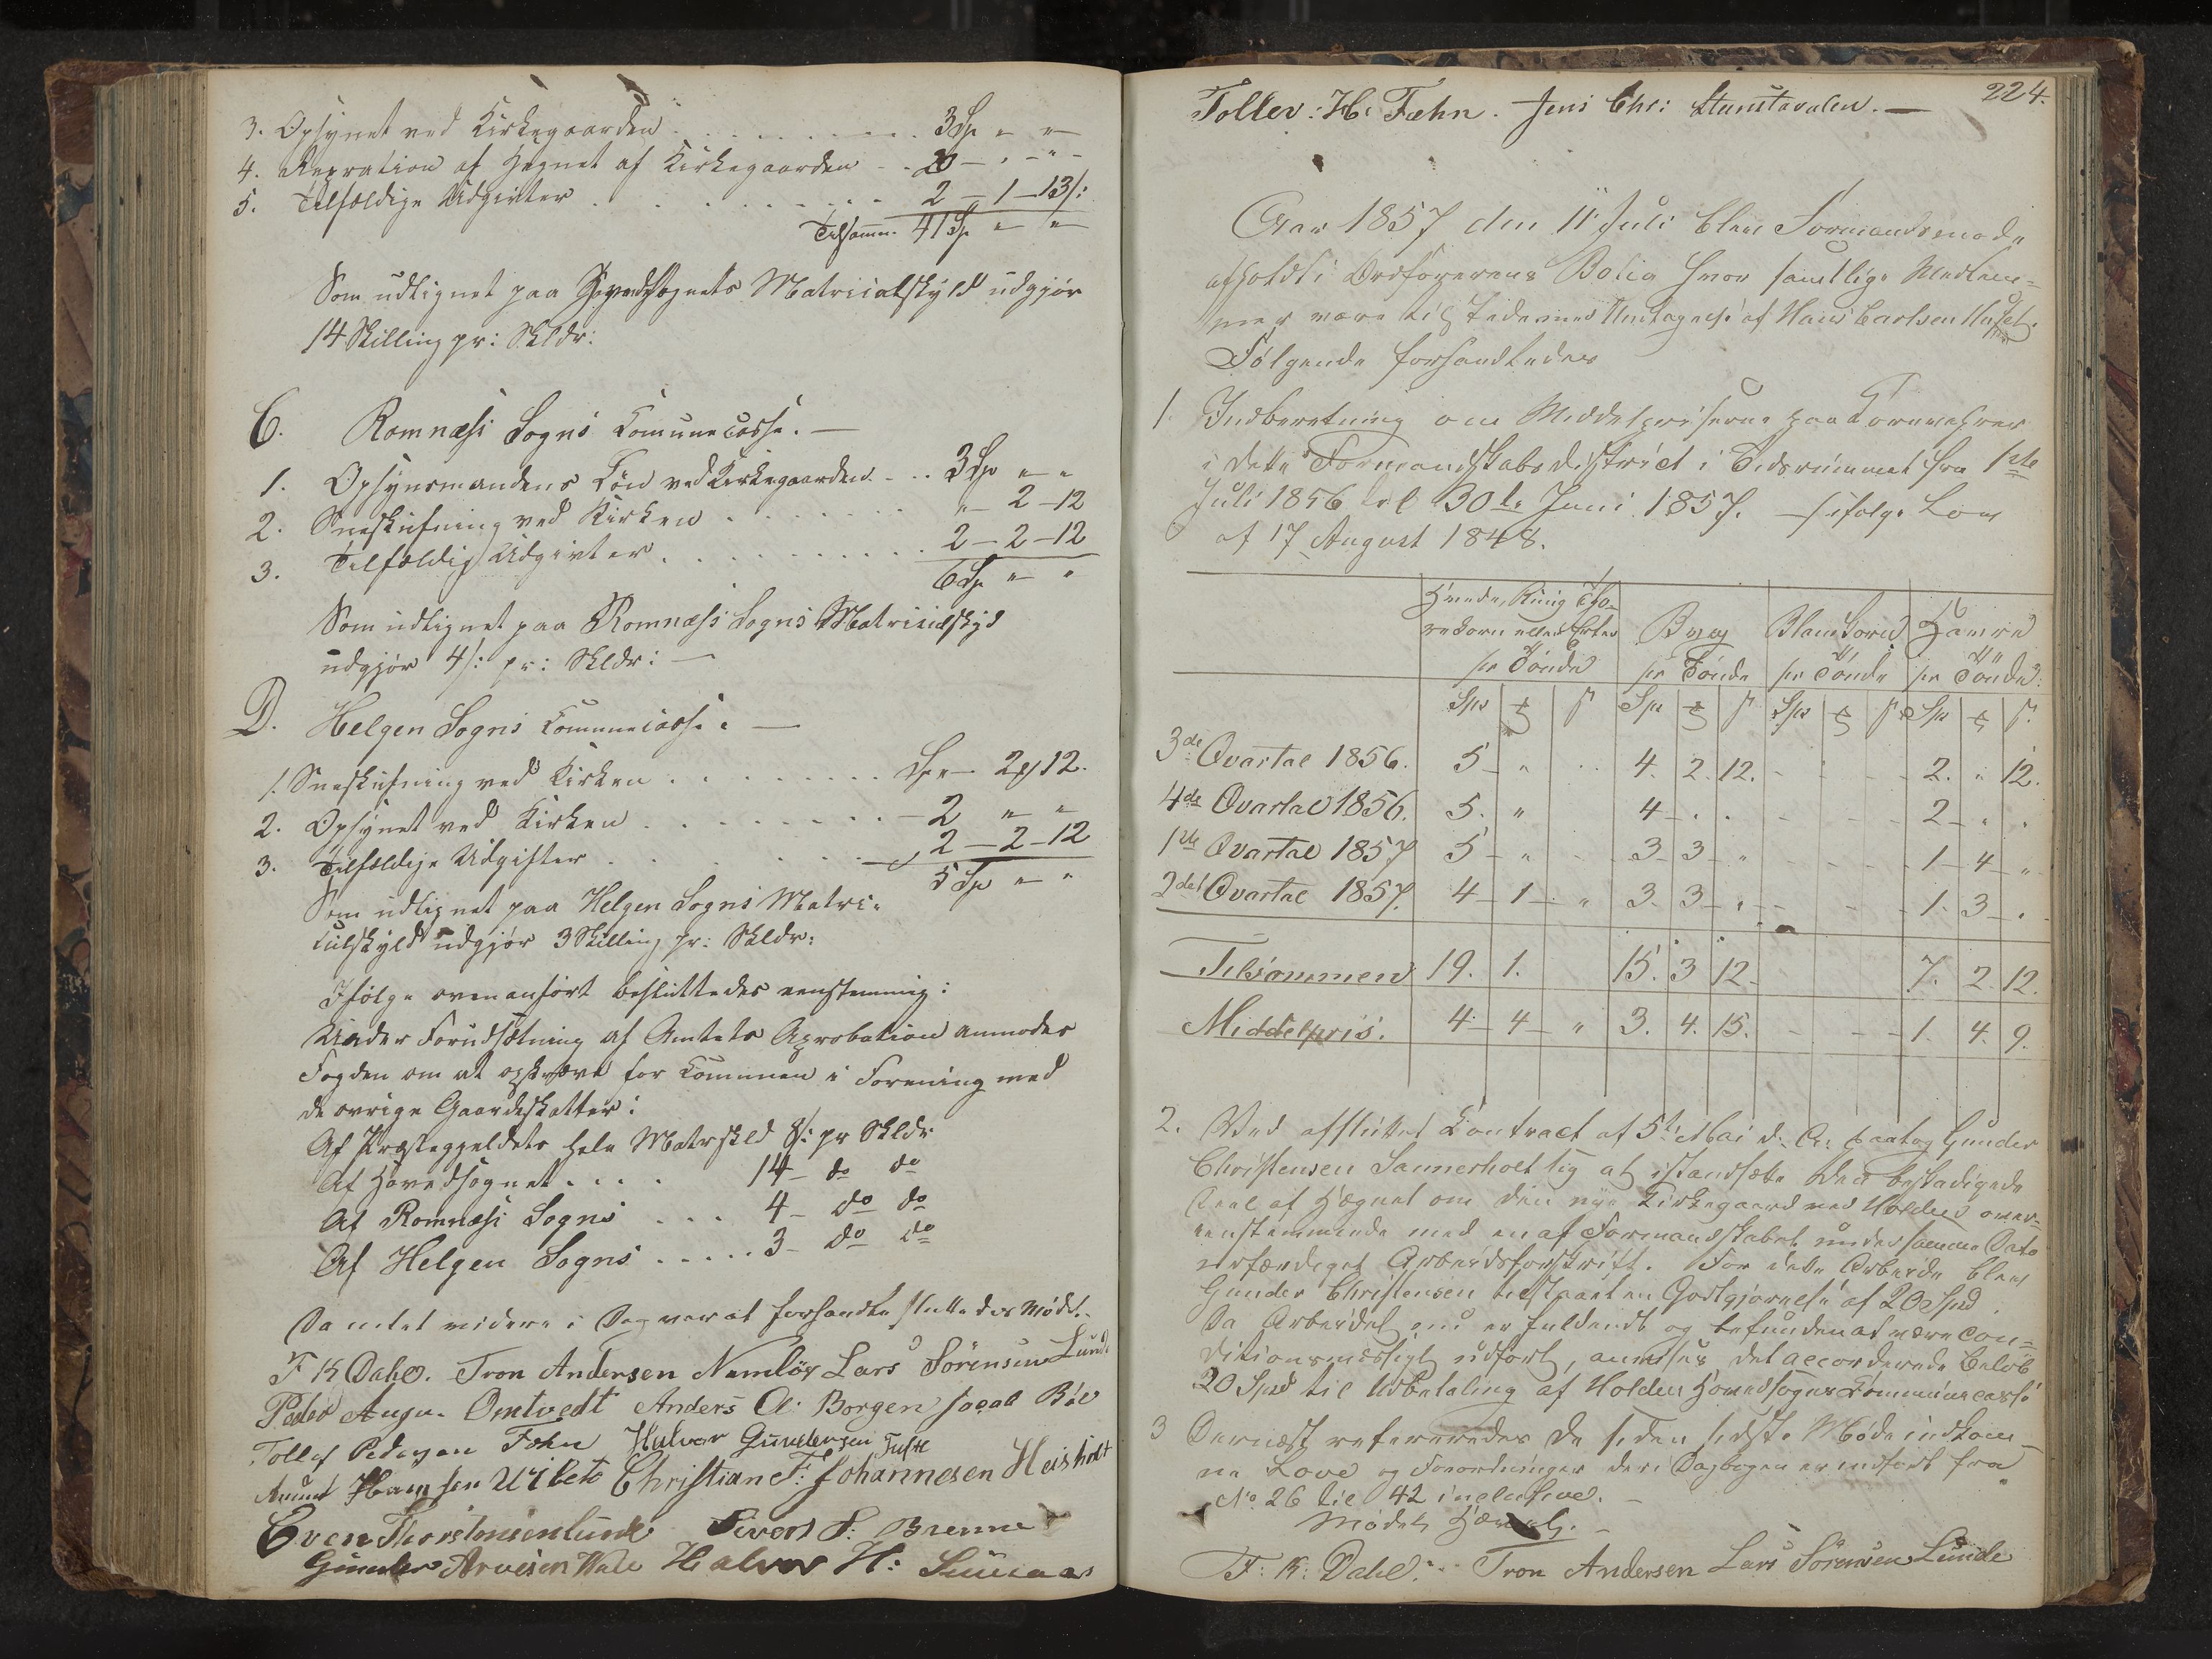 3. Opsynet ved Kirkegaarden . . . . 3 Sp " "
4. Repration af Hegnet af Kirkegaarden - 20 - " - " -
5. Tilfældige Udgivter . . . . 2 - 1 - 13 s:
Tilsamm. 41 Sp " "
Som udlignet paa Hovedsognets Matriculskyld udgjør
14 Skilling pr: Skldr:
C. Romnæs Sogns Comunecasse. —
1. Opsynsmandens Løn ved Kirkegaarden . . 3 Sp " "
2. Sneskufning ved Kirken . . . . " - 2 - 12
3. Tilfældige Udgivter . . . . 2 - 2 - 12
6 Sp " "
Som udlignet paa Romnæs Sogns Matriculskyld
udgjør 4 s: pr: Skldr: —
D. Helgen Sogns Communecasse. —
1. Sneskufning ved Kirken . . . . Sp " - 2 12.
2. Opsynet ved Kirken . . . . 2 " "
3. Tilfældige Udgifter . . . . 2 - 2 - 12
5 Sp " "
Som udlignet paa Helgen Sogns Matri-
culskyld udgjør 3 Skilling pr: Skldr:
Ifølge ovenanført besluttedes eenstemmig:
Under Forudsætning af Amtets Aprobation anmodes
Fogden om at opkræve for Communen i Forening med
de øvrige Gaardeskatter:
Af Præstegjeldets hele Matrskld 8 s: pr Skldr
Af Hovedsognet . . . . 14 - do do
Af Romnæs Sogns . . . 4 - do do
Af Helgen Sogns . . . . 3 - do do
Da intet videre i Dag var at forhandle sluttedes Mødet.
F K Dahl. Tron Andersen Namløs Lars Sörensen Lunde
Peder Omtvedt Anders A. Borgen Jacob Böe
Tollef Pedersen Halvor Gundersen Tufte
Hansen Christian F: Johannesen Heisholt
Even Thorstensen Lunde Sivert S: Brenne
Gunder Arvesen Halvor H:
224.
Tollev: H: Fæhn. Jens Chr: —
Aar 1857 den 11 Juli blev Formandsmøde
afholdt i Ordførerens Bolig hvor samtlige Medlem-
mer vare tilstede med Undtagelse af Hans Carlsen
Følgende forhandledes
1. Indberetning om Middelpriserne paa Kornvahrer
i dette Formandskabsdistrict i Tidsrummet fra 1ste
Juli 1856 til 30te Juni 1857. — ifølge Lov
af 17 August 1848.
Hvede, Rug eller Erter Byg Blandkorn Havre
pr Tönde pr Tönde pr Tönde pr Tönde
3de Qvartal 1856. 5 - " 4. 2. 12. 2. " 12.
4de Qvartal 1856. 5. " 4 - " " 2 - " "
1ste Qvartal 1857 5 - " 3 - 3 - " 1 - 4 - "
2det Qvartal 1857. 4 - 1 - " 3. 3 - " 1. 3 - "
Tilsammen 19. 1. 15. 3 12. 7. 2. 12.
Middelpris. 4 - 4 - " 3. 4. 15. 1. 4. 9.
2. Ved afsluttet Contract af 5te Mai d: A: paatog Gunder
Christensen Sannerholt sig at istandsætte den beskadigede
Deel af Hegnet om den nye Kirkegaard ved Holden over-
eenstemmende med en af Formandskabet under samme Dato
utfærdiget Arbeidsforskrift. For dette Arbeide blev
Gunder Christensen tilstaaet en Godtgjørelse af 20 Spd.
Da Arbeidet nu er fuldendt og befunden at være con-
ditionsmæssigt udført, anvises det accorderede Beløb
20 Spd til Udbetaling af Holden Hovedsogns Communecasse
3 Dernæst refereredes de siden sidste Møde indkom-
ne Love og Forordninger der i Dagbogen er indført fra
No. 26 til 42 inclusive. —
Mødet Hævet. —
F: K: Dahl. Tron Andersen Lars Sörensen Lunde